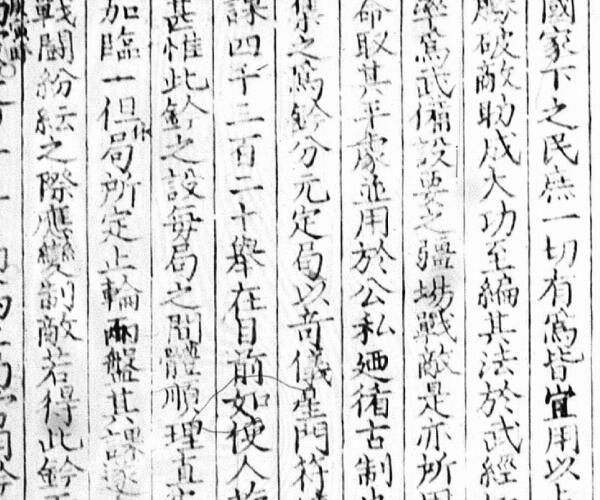 國家下之民庶一切有為皆宜用以
勝破敵助成大功至編其法於武經
率為武備設要之疆場戰敵是亦所
命取其平處並用於公私廼循古制
集之為鈐分元定局以奇儀星門符
課四千三百二十舉在目前如使人
甚惟此鈐之設每局之間體順理直
加臨一但局所定止輪兩盤其課遂
戰鬪紛紜之際應變制敵若得此鈐